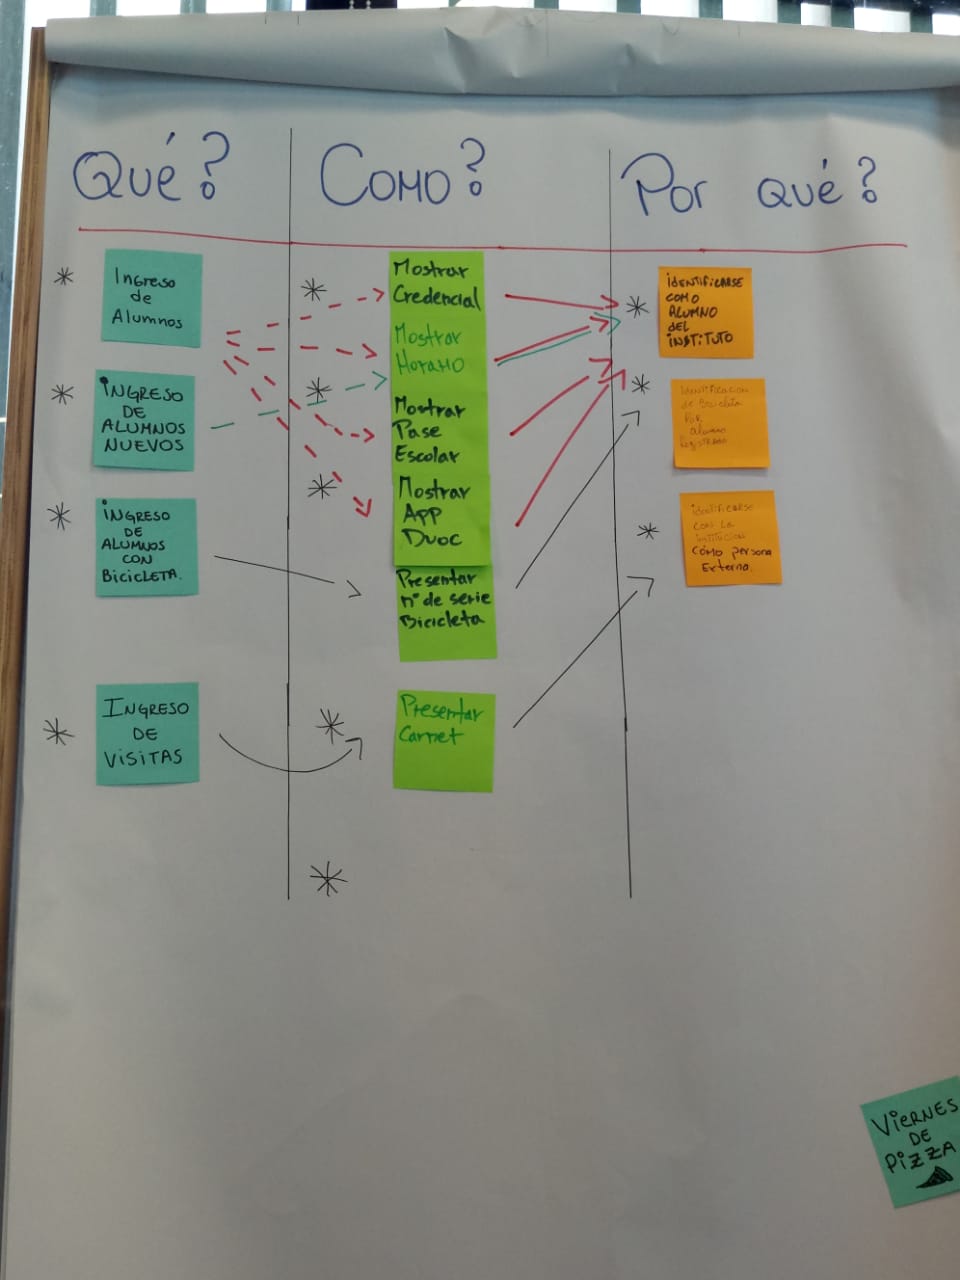 Qué?
Como?
Por qué?
Ingreso
de
Alumnos
INGRESO
DE
ALUMNOS
NUEVOS
INGRESO
DE
ALUMNOS
CON
BicicLETA.
INGRESO
DE
VISITAS
Mostrar
Credencial
Mostrar
Horario
Mostrar
Pase
Escolar
Mostrar
APP
Duoc
Presentar
n° de serie
Bicicleta
Presentar
Carnet
IDENTIFICARSE
COMO
ALUMNO
DEL
INSTITUTO
Identificacion
de Bicicleta
POR
Alumno
Registrado
identificarse
con la
institucion
cómo persona
Externa.
ViERNES
DE
PIZZA